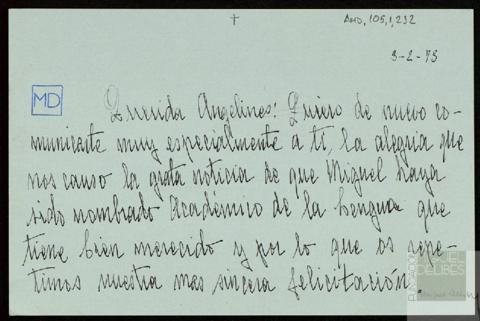 ✝
AMD, 105,1,232
3-2-73
MD
Querida Angelines: Quiero de nuevo co-
municarte muy especialmente a ti, la alegria que
nos causo la grata noticia de que Miguel haya
sido nombrado Académico de la Lengua que
tiene bien merecido y por lo que os repe-
timos nuestra mas sincera felicitación.
FUNDACIÓN
MIGUEL
DELIBES